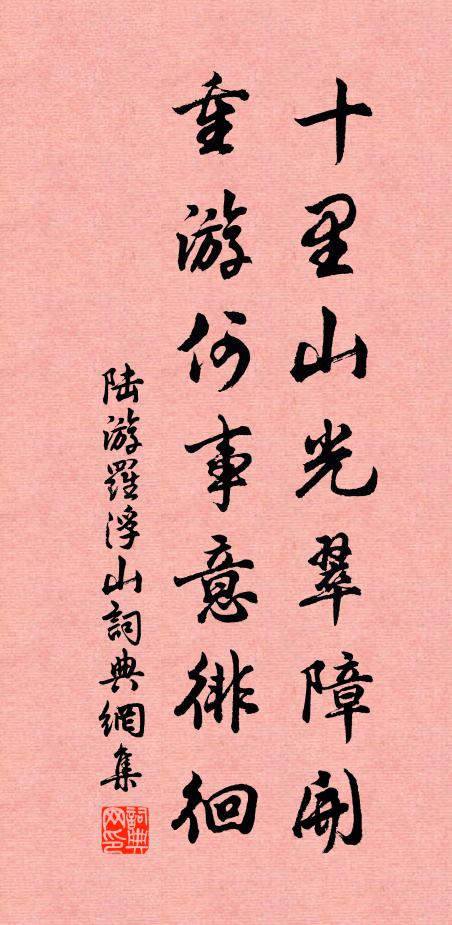 十里山光翠障開
重游何事意徘徊
陆游羅浮山詞典網集
詞典
网印